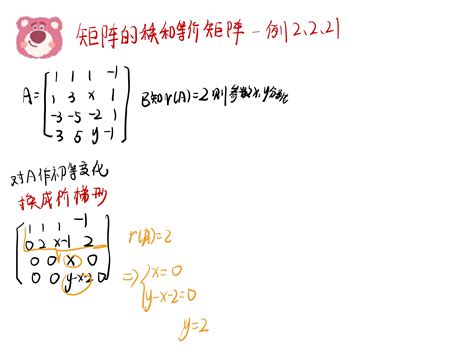 矩阵的秩和等价矩阵-例2.2.21
A=[1 1 1 -1
1 3 x 1
-3 -5 -2 1
3 5 y -1]
已知r(A)=2则参数x,y分别
对A作初等变化
换成阶梯形
[1 1 1 -1
0 2 x-1 2
0 0 x 0
0 0 y-x-2 0]
r(A)=2
⇒{x=0
y-x-2=0
y=2